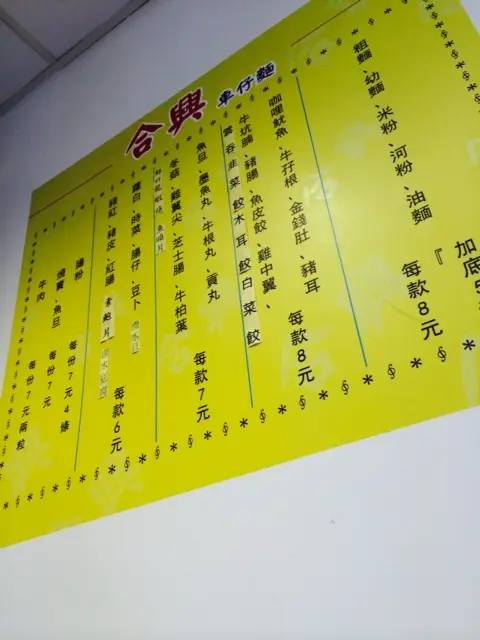 合興 車仔麵
粗麵、幼麵、米粉、河粉、油麵
每款8元
『加底5
咖哩魷魚、牛孖根、金錢肚、豬耳
牛坑腩、豬腸、魚皮餃、雞中翼、
雲吞韭菜餃木耳餃白菜餃
每款8元
魚旦、墨魚丸、牛根丸、貢丸
冬菇、雞翼尖、芝士腸、牛柏葉
每款7元
蘿白、時菜、腸仔、豆卜
豬紅、豬皮、紅腸、素鮑片
每款6元
腸粉 每份7元4條
燒賣、魚旦 每份7元
牛肉 每份7元兩粒